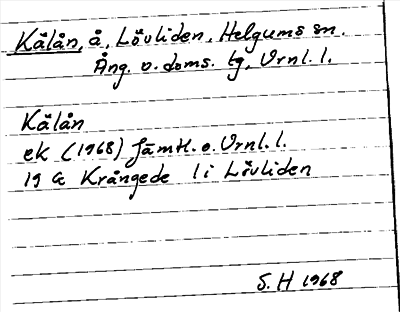 Kälån, å, Lövliden, Helgums sn.
Ång. v. doms. tg, Vrnl. l.
Kälån
ek (1968) Jämtl. o. Vrnl. l.
19 G Krångede 1i Lövliden
S. H 1968